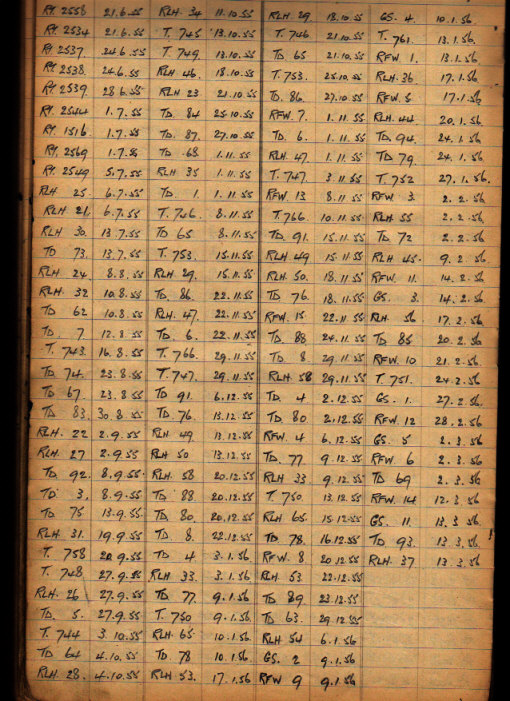 RT. 2558 21.6.55 RLH 34 11.10.55 RLH. 29 18.10.55 GS. 4. 10.1.56
RT. 2534 21.6.55 T. 745 13.10.55 T. 746 21.10.55 T. 761. 13.1.56.
RT. 2537. 24.6.55 T. 749. 13.10.55 TD 65 21.10.55 RFW. 1. 13.1.56
RT. 2538. 24.6.55 RLH 46. 18.10.55 T. 753. 25.10.55 RLH. 36 17.1.56
RT. 2539 28.6.55 RLH 23 21.10.55 TD. 86. 27.10.55 RFW. 5 17.1.56
RT. 2544 1.7.55 TD. 84 25.10.55 RFW. 7. 1.11.55 RLH. 44 20.1.56
RT. 1516 1.7.55 TD. 87. 27.10.55 TD 6. 1.11.55 TD. 94. 24.1.56
RT. 2569 1.7.55 TD 68 1.11.55 RLH. 47. 1.11.55 TD 79. 24.1.56
RT. 2549 5.7.55 RLH 35 1.11.55 T. 747. 3.11.55 T. 752 27.1.56.
RLH 25. 6.7.55 TD 1 1.11.55 RFW. 13 8.11.55 RFW 3. 2.2.56
RLH 21. 6.7.55 T. 746. 8.11.55 T. 766. 10.11.55 RLH 55 2.2.56
RLH 30. 13.7.55 TD 65 8.11.55 TD. 91. 15.11.55 TD. 72 2.2.56
TD 73. 13.7.55 T. 753. 15.11.55 RLH 49 15.11.55 RLH 45. 9.2.56
RLH 24 8.8.55 RLH 29. 15.11.55 RLH. 50. 18.11.55 RFW. 11. 14.2.56
RLH. 32 10.8.55 TD. 86. 22.11.55 TD 76. 18.11.55 GS. 3. 14.2.56
TD 62 10.8.55 RLH. 47. 22.11.55 RFW. 15 22.11.55 RLH. 56 17.2.56
TD. 7 12.8.55 TD. 6. 22.11.55 TD. 88 24.11.55 TD 85 20.2.56
T. 743. 16.8.55 T. 766. 29.11.55 TD 8 29.11.55 RFW. 10 21.2.56
TD 74. 23.8.55 T. 747. 29.11.55 RLH. 58 29.11.55 T. 751. 24.2.56
TD 67. 23.8.55 TD 91. 6.12.55 TD. 4 2.12.55 GS. 1. 27.2.56
TD. 83. 30.8.55 TD. 76. 13.12.55 TD 80 2.12.55 RFW. 12 28.2.56
RLH. 22 2.9.55 RLH 49 13.12.55 RFW. 4 6.12.55 GS. 5 2.3.56
RLH. 27 2.9.55 RLH 50 13.12.55 TD. 77 9.12.55 RFW. 6 2.3.56
TD. 92. 8.9.55 RLH. 58 20.12.55 RLH 33 9.12.55 TD 69 2.3.56
TD. 3. 8.9.55 TD 88 20.12.55 T. 750 13.12.55 RFW. 14 12.3.56
TD 75 13.9.55 TD 80. 20.12.55 RLH 65. 15.12.55 GS. 11. 13.3.56
RLH. 31. 19.9.55 TD. 8. 22.12.55 TD. 78. 16.12.55 TD. 93. 13.3.56
T. 758 20.9.55 TD 4 3.1.56 RFW. 8 20.12.55 RLH. 37 13.3.56
T. 748. 27.9.55 RLH 33. 3.1.56 RLH. 53 22.12.55
RLH. 26 27.9.55 TD 77. 9.1.56 TD 89 23.12.55
TD. 5. 27.9.55 T. 750 9.1.56. TD 63. 29.12.55
T. 744 3.10.55 RLH. 65. 10.1.56 RLH 54 6.1.56
TD 64 4.10.55 TD. 78 10.1.56. GS. 2 9.1.56
RLH. 28. 4.10.55 RLH 53. 17.1.56 RFW 9 9.1.56